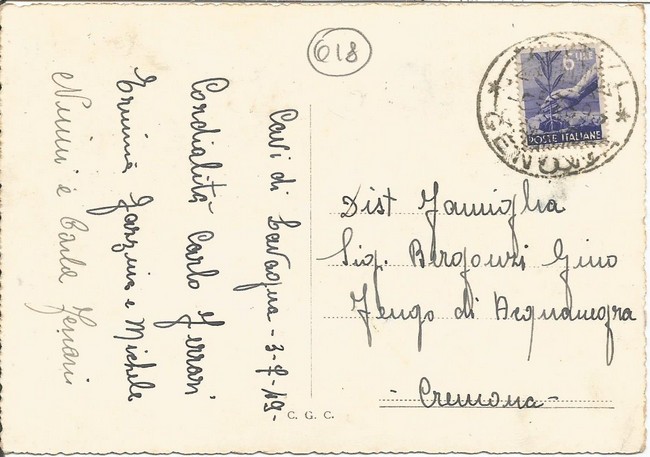 618
Cavi di Lavagna - 3-7-49-
Cordialità Carlo Ferrari
Erminia e Michele
Ninni e Carla Ferrari
6 LIRE
POSTE ITALIANE
GENOVA
Dist Famiglia
Sig. Bergonzi Gino
Fengo di Acquanegra
- Cremona -
C. G. C.